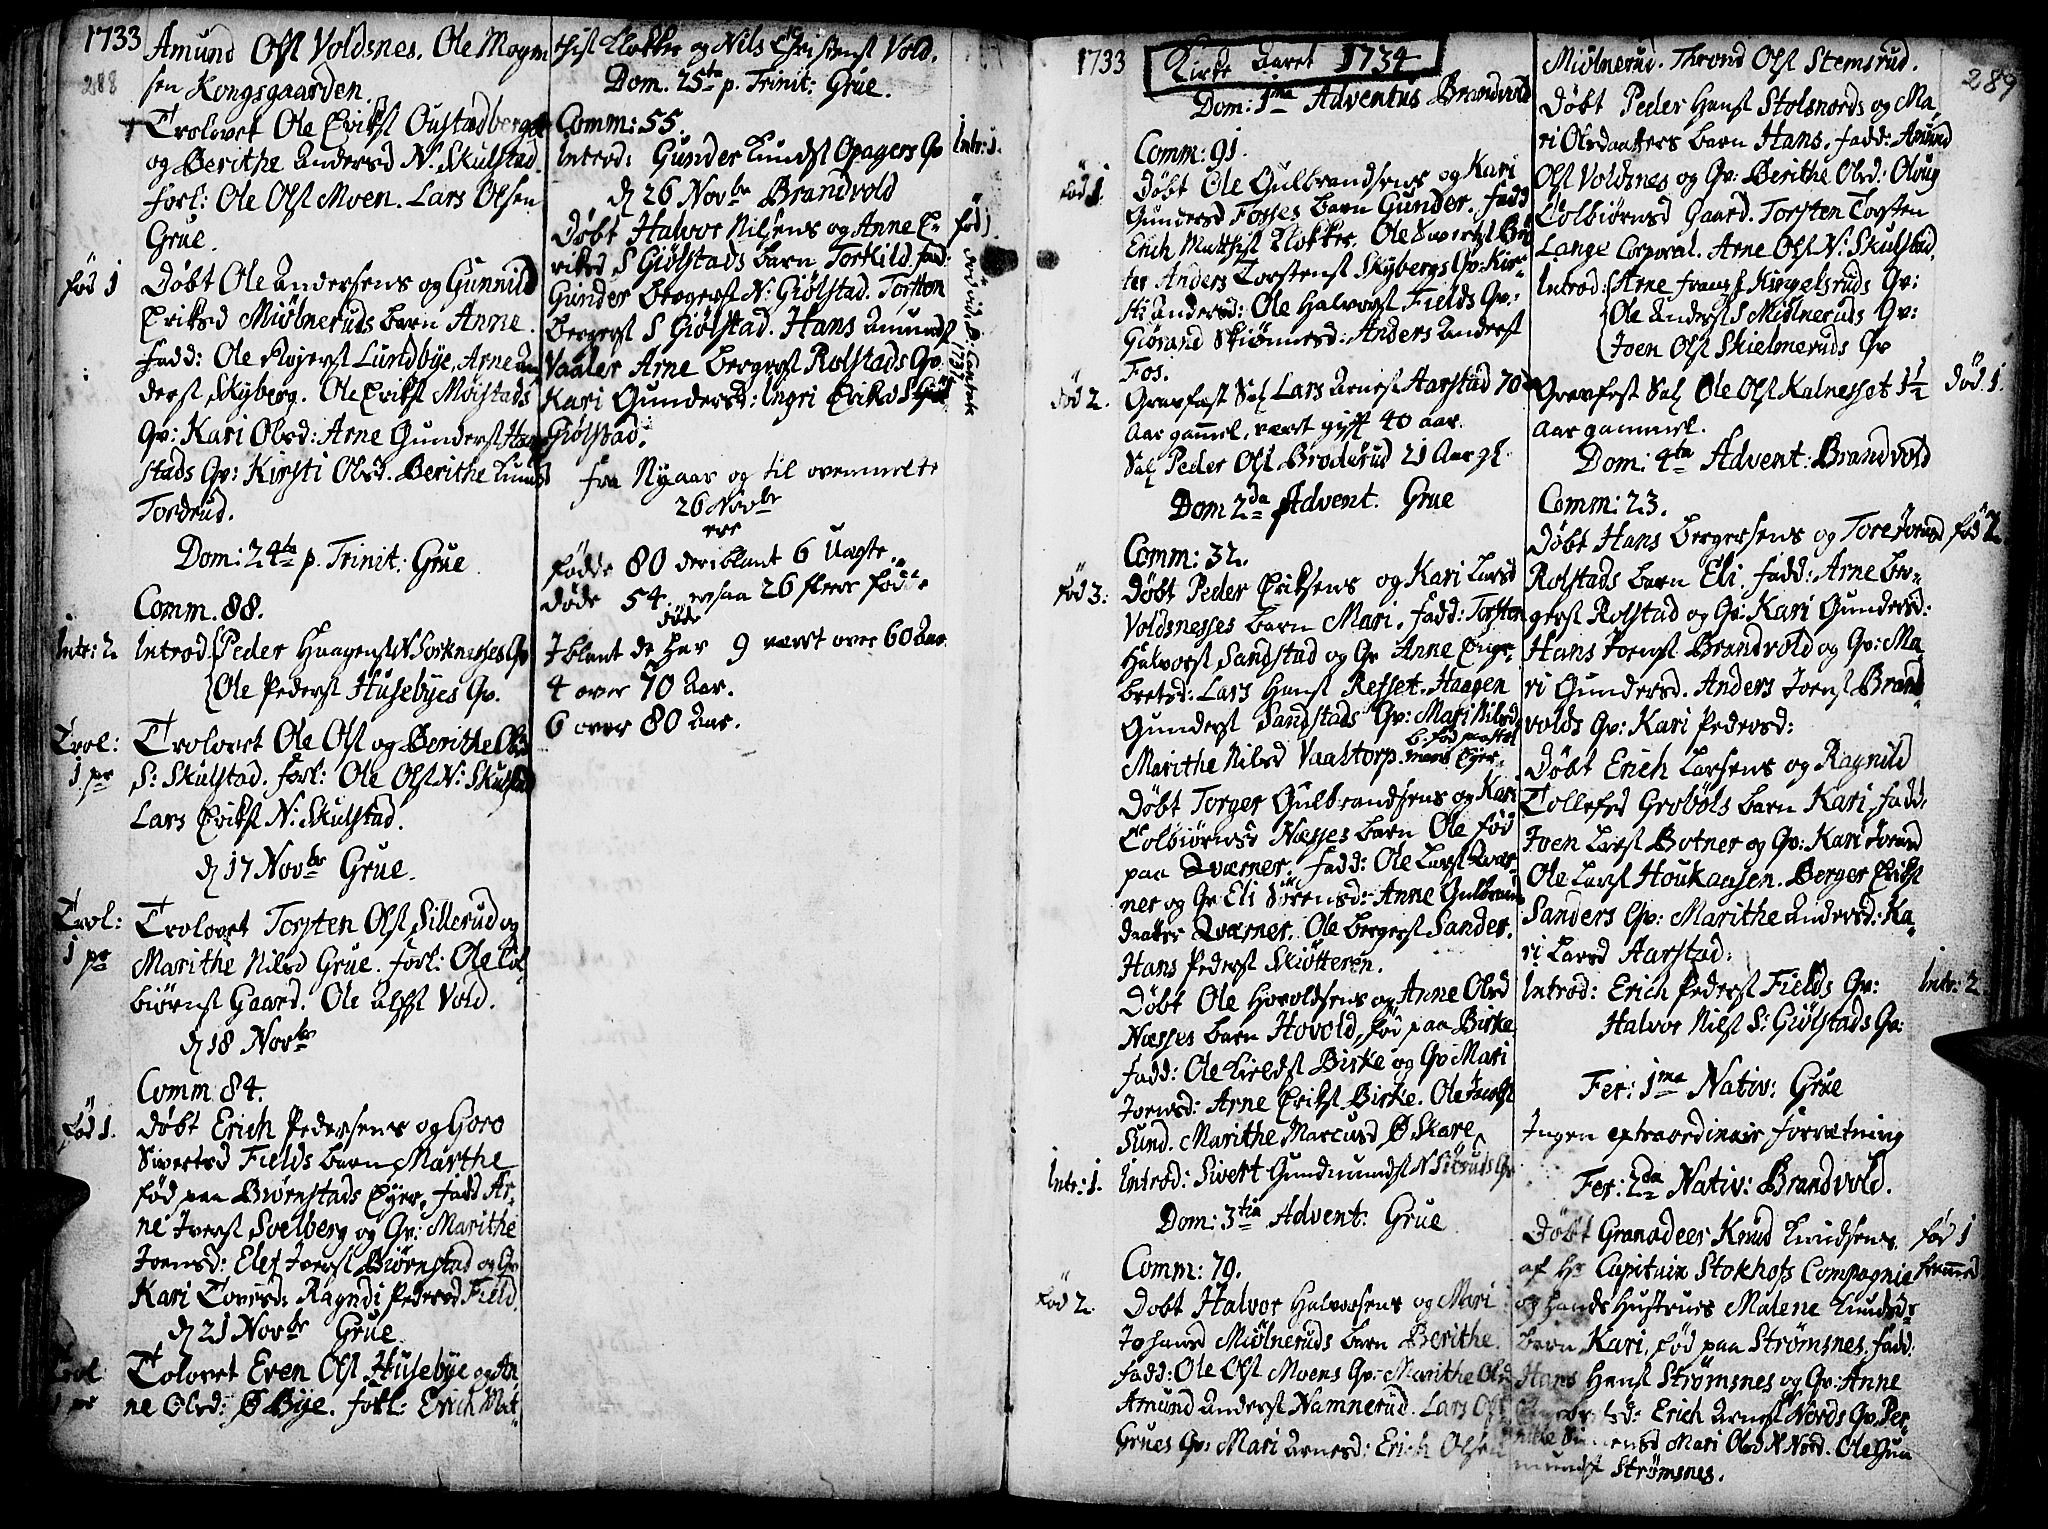 1733
288
Amund Olss Voldsnes. Ole Mogen
sen Kongsgaarden.
Trolovet Ole Erikss Oustadberget
og Berithe Andersd N. Skulstad.
forl: Ole Olss Moen. Lars Olsen
Grue.
Fød 1
Døbt Ole Andersens og Gunnild
Eriksd Miølneruds barn Anne.
fadd: Ole Lundbye, Arne An
derss Skyberg. Ole Erikss Møistads
Qv: Kari Olsd: Arne Gunderss
stads Qv: Kirsti Olsd. Berithe Knuds
Torderud.
Dom: 24de p. Trinit: Grue
Comm. 88.
Intr: 2.
Introd. Peder Haagenss N Sorknesses Qv
Ole Pederss Husebyes Qv.
Trol:
1 pr
Trolovet Ole Olss og Berithe Olsd
S: Skulstad. forl: Ole Olss N: Skulstad
Lars Erikss N: Skulstad.
d 17 Novbr Grue.
Trol:
1 pr
Trolovet Torsten Olss Sillerud og
Marithe Nilsd Grue. forl: Ole Tol
biørnss Gaard. Ole Alfss Vold.
d 18 Novbr
Comm 84.
Fød 1.
Døbt Erich Pedersens og Goro
Sivertsd Fields barn Marthe
fød paa Biørnstads Eyer. fadd Ar-
ne Iverss Soelberg og Qv: Marithe
Joensd: Elef Iverss Biørnstad og Qv
Kari Tovesd: Ragndi Pedersd Field.
d 21 Novbr Grue
Trol
1 pr
Trolovet Even Olss Husebye og An
ne Olsd: Ø Bye. forl: Erich Mat-
thiss Klokker og Nils Christenss Vold.
Dom. 25te p. Trinit: Grue.
Comm: 55.
Introd: Gunder Knudss Opagers Qv
Intr: 1.
d 26 Novbr Brandvold
Døbt Halvor Nilsens og Anne E-
riksd S Giølstads barn Torkild. fad:
Fød 1.
Gunder Bergerss N: Giølstad. Torsten
Bergerss S Giølstad. Hans Amunds
Vaaler Arne Bergerss Rolstads Qv.
Kari Gundersd: Ingri Eriksd S
Giølstad.
1732
fra Nyaar og til ovenmelte
26 Novbr
ere
fødde 80 deriblant 6 Uægte
døde 54. ersaa 26 fleere fødde
døde
Iblant de har 9 været over 60 Aar
4 over 70 Aar.
6 over 80 Aar.
1733
Kirke Aaret 1734
Dom: 1ma Adventus Brandvold
Comm: 91.
Fød 1.
Døbt Ole Gulbrandsens og Kari
Gundersd Fosses barn Gunder. fadd
Erich Matthiss Klokker. Ole Sivertss
ter Anders Torstens Skybergs Qv: Kir-
sti Andersd: Ole Halvorss Fields Qv:
Giørand Skiønnesd: Anders Anderss
Fos.
Død 2.
Gravfæst Sal Lars Arness Aarstad 70
Aar gammel, været gift 40 aar.
Sal Peder Olss Broderud 21 Aar gl.
Dom 2da Advent. Grue
Comm: 32.
Fød 3:
Døbt Peder Eriksens og Kari Larsd
Voldsnesses barn Mari. fadd: Torsten
Halvorss Sandstad og Qv Anne Enge-
bretsd: Lars Hanss Resset. Haagen
Gunderss Sandstads Qv: Mari Nilsd
Marithe Nilsd Vaaltorp.
Døbt Torger Gulbrandsens og Kari
Tolbiørnsd Næsses barn Ole fød
paa Qværner. fadd: Ole Larss Qvær-
ner og Qv Eli Sørensd: Anne Gulbrands
daater Qværner. Ole Bergerss Sander.
Hans Pederss Skiøtteren.
Døbt Ole Hovoldsens og Anne Olsd
Næsses barn Hovold, fød paa Birke
fadd: Ole Kieldss Birke og Qv Mari
Joensd: Arne Erikss Birke. Ole Jacobss
Sund. Marithe Marcusd Ø Skare
Intr: 1.
Introd: Sivert Gudmundss N Qv
Dom: 3tia Advent: Grue
Comm: 79.
Fød 2.
Døbt Halvor Halvorsens og Mari
Johansd Miølneruds barn Berithe.
fadd: Ole Olss Moens Qv: Marithe Olsd
Amund Anderss Namnerud. Lars Olss
Grues Qv: Mari Arnesd: Erich Olsen
289
Miølnerud. Thrond Olss Stemsrud.
Døbt Peder Hanss Stolsnords og Ma-
ri Olsdaatters barn Hans. fadd: Amund
Olss Voldsnes og Qv: Berithe Olsd: Oloug
Tolbiørnsd Gaard. Torsten Torsten
Lange Corporal. Arne Olss N: Skulstad.
Introd: Arne Franss Hingelsruds Qv:
Ole Anderss S Miølneruds Qv:
Joen Olss Skielneruds Qv
Gravfest Sal Ole Olss Kalnesset 1 1/2
Død. 1.
Aar gammel.
Dom: 4ta Advent: Brandvold
Comm: 23.
Døbt Hans Bergersens og Tore Joensd
Fød 2
Rolstads barn Eli. fadd: Arne Ber-
gerss Rolstad og Qv: Kari Gundersd:
Hans Joenss Brandvold og Qv: Ma-
ri Gundersd. Anders Joenss Brand-
volds Qv: Kari Pedersd:
Døbt Erich Larsens og Ragnild
Tollefsd Grobøls barn Kari. fadd.
Joen Larss Botner og Qv: Kari Joensd
Ole Larss Houkaasen. Berger Erikss
Sanders Qv: Marithe Andersd: Ka-
ri Larsd Aarstad:
Introd: Erich Pederss Fields Qv:
Intr: 2
Halvor Nilss S: Giølstads Qv:
Fer: 1ma Nativ: Grue
Ingen extraordinair forretning
Fer: 2da Nativ: Brandvold.
Døbt Granadeer Knud Knudsens
Fød 1
fremmed
af Hr Capitain Stokhofs Compagnie
og hands Hustrues Malene Knudsd:
barn Kari, fød paa Strømsnes. fadd:
Hans Hanss Strømsnes og Qv: Anne
Erich Arness Nords Qv. Per-
nille Mari Olsd N Nord. Ole Gun
mundss Strømsnes.